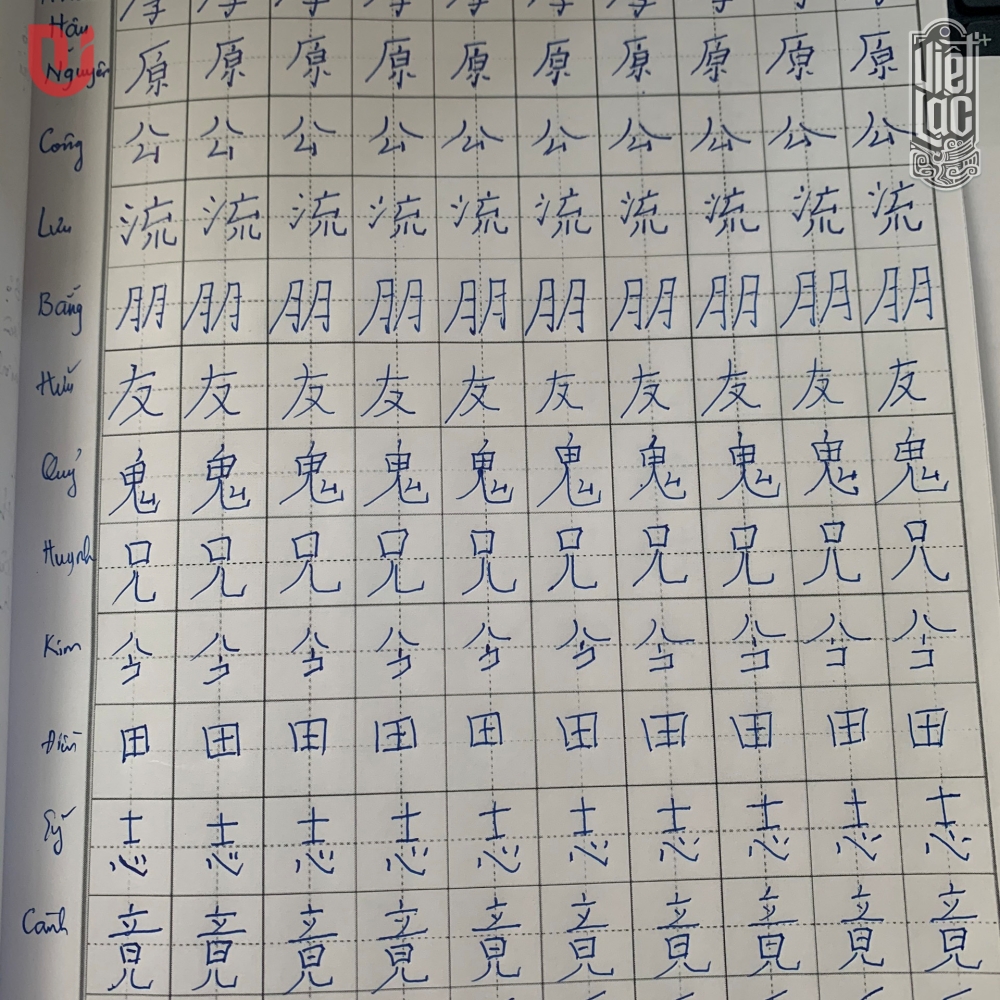 Hậu
Nguyên 原 原 原 原 原 原 原 原 原 原
Việt Lạc
Công 公 公 公 公 公 公 公 公 公 公
Lưu 流 流 流 流 流 流 流 流 流 流
Bằng 朋 朋 朋 朋 朋 朋 朋 朋 朋 朋
Hữu 友 友 友 友 友 友 友 友 友 友
Quỷ 鬼 鬼 鬼 鬼 鬼 鬼 鬼 鬼 鬼 鬼
Huynh 兄 兄 兄 兄 兄 兄 兄 兄 兄 兄
Kim 兮 兮 兮 兮 兮 兮 兮 兮 兮 兮
Điền 田 田 田 田 田 田 田 田 田 田
志 志 志 志 志 志 志 志 志 志
Cảnh 竟 竟 竟 竟 竟 竟 竟 竟 竟 竟